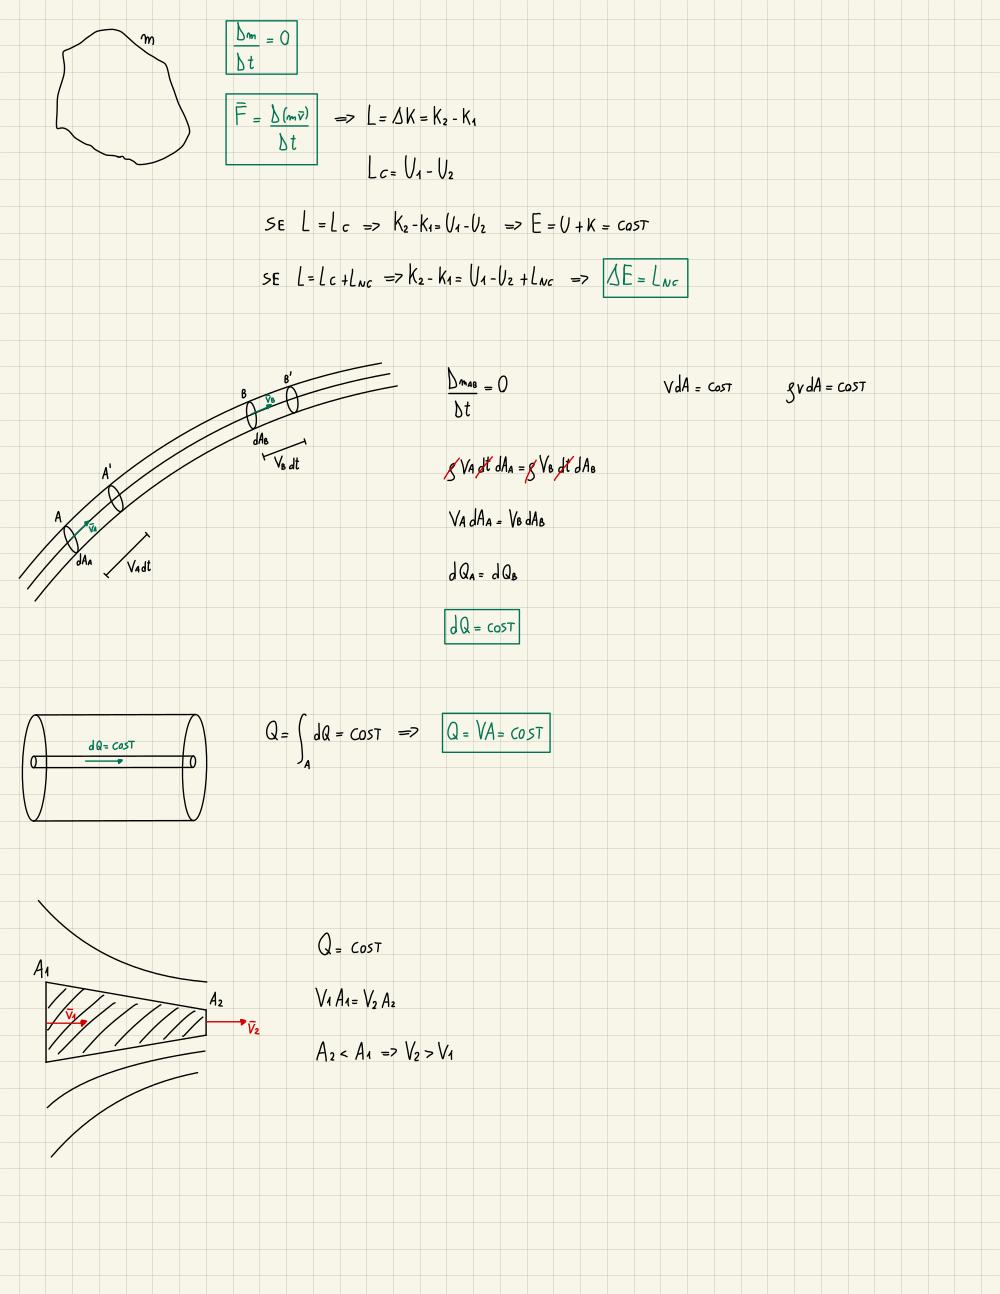 m
Dm/Dt = 0
F̄ = D(mv̄)/Dt ⇒ L = ΔK = K₂ - K₁
Lc = U₁ - U₂
SE L = Lc ⇒ K₂ - K₁ = U₁ - U₂ ⇒ E = U + K = COST
SE L = Lc + LNC ⇒ K₂ - K₁ = U₁ - U₂ + LNC ⇒ ΔE = LNC
A
A'
B
B'
v̄A
v̄B
dAA
dAB
VA dt
VB dt
DmAB/Dt = 0
v dA = COST
ρ v dA = COST
ρ VA dt dAA = ρ VB dt dAB
VA dAA = VB dAB
dQA = dQB
dQ = COST
dQ = COST
Q = ∫A dQ = COST ⇒ Q = VA = COST
A₁
A₂
v̄₁
v̄₂
Q = COST
V₁ A₁ = V₂ A₂
A₂ < A₁ ⇒ V₂ > V₁